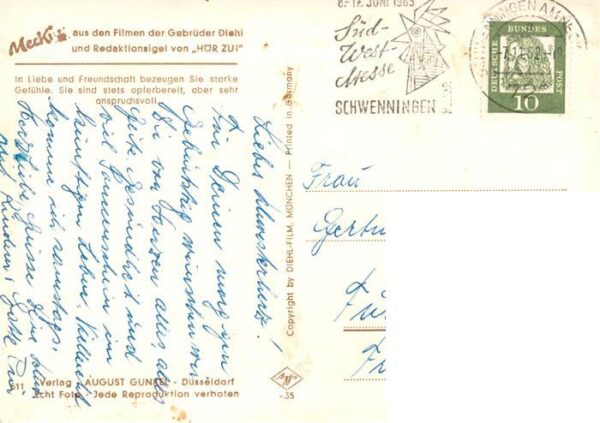 Mecki aus den Filmen der Gebrüder Diehl
und Redaktionsigel von „HÖR ZU!"
In Liebe und Freundschaft bezeugen Sie starke
Gefühle. Sie sind stets opferbereit, aber sehr
anspruchsvoll.
Liebes Schwesterherz!
Für Deinen morgigen
Geburtstag wünschen wir
Dir von Herzen alles, alles
Gute, Gesundheit und
viel Sonnenschein im
künftigen Leben. Vielleicht
komme ich samstags.
Herzliche Grüsse Eure
Kindern
Verlag AUGUST GUNKEL - Düsseldorf
Echt Foto - Jede Reproduktion verboten
Copyright by DIEHL-FILM, MÜNCHEN — Printed in Germany
Agfa
8.-17. JUNI 1963
Süd-
West-
Messe
SCHWENNINGEN
DEUTSCHE BUNDESPOST
10
Frau